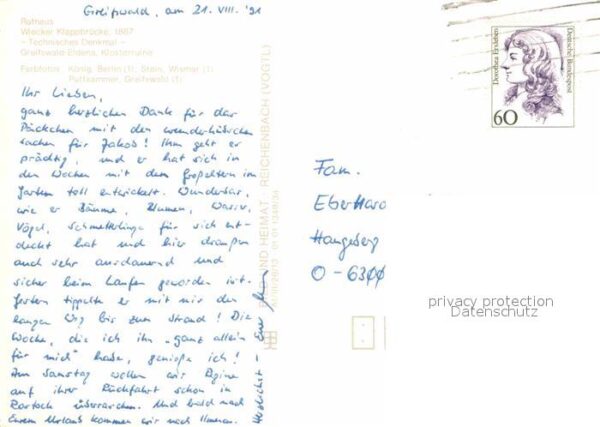 Greifswald, am 21. VIII. '91
Rathaus
Wiecker Klappbrücke, 1887
- Technisches Denkmal -
Greifswald-Eldena, Klosterruine
Farbfotos: König, Berlin (1); Stein, Wismar (1)
Puttkammer, Greifswald (1)
Ihr Lieben,
ganz herzlichen Dank für das
Päckchen mit den wunderhübschen
Sachen für Jakob! Ihm geht es
prächtig, und er hat sich in
den Wochen mit den Großeltern im
Garten toll entwickelt. Wunderbar,
wie er Bäume, Blumen, Wasser,
Vögel, Schmetterlinge für sich ent-
deckt hat und hier draußen
auch sehr ausdauernd und
sicher beim Laufen geworden ist.
Gestern tippelte er mit mir den
langen Weg bis zum Strand! Die
Woche, die ich ihn "ganz allein
für mich" habe, genieße ich!
Am Samstag wollen wir
auf ihrer Rückfahrt schon in
Rostock überraschen. Und bald nach
Eurem Urlaub kommen wir nach Ilmenau.
Herzlichst - Eure
UND HEIMAT REICHENBACH (VOGTL)
Dorothea Erxleben
Deutsche Bundespost
60
Fam.
Eberhard
Hangeberg
O-6300
privacy protection
Datenschutz